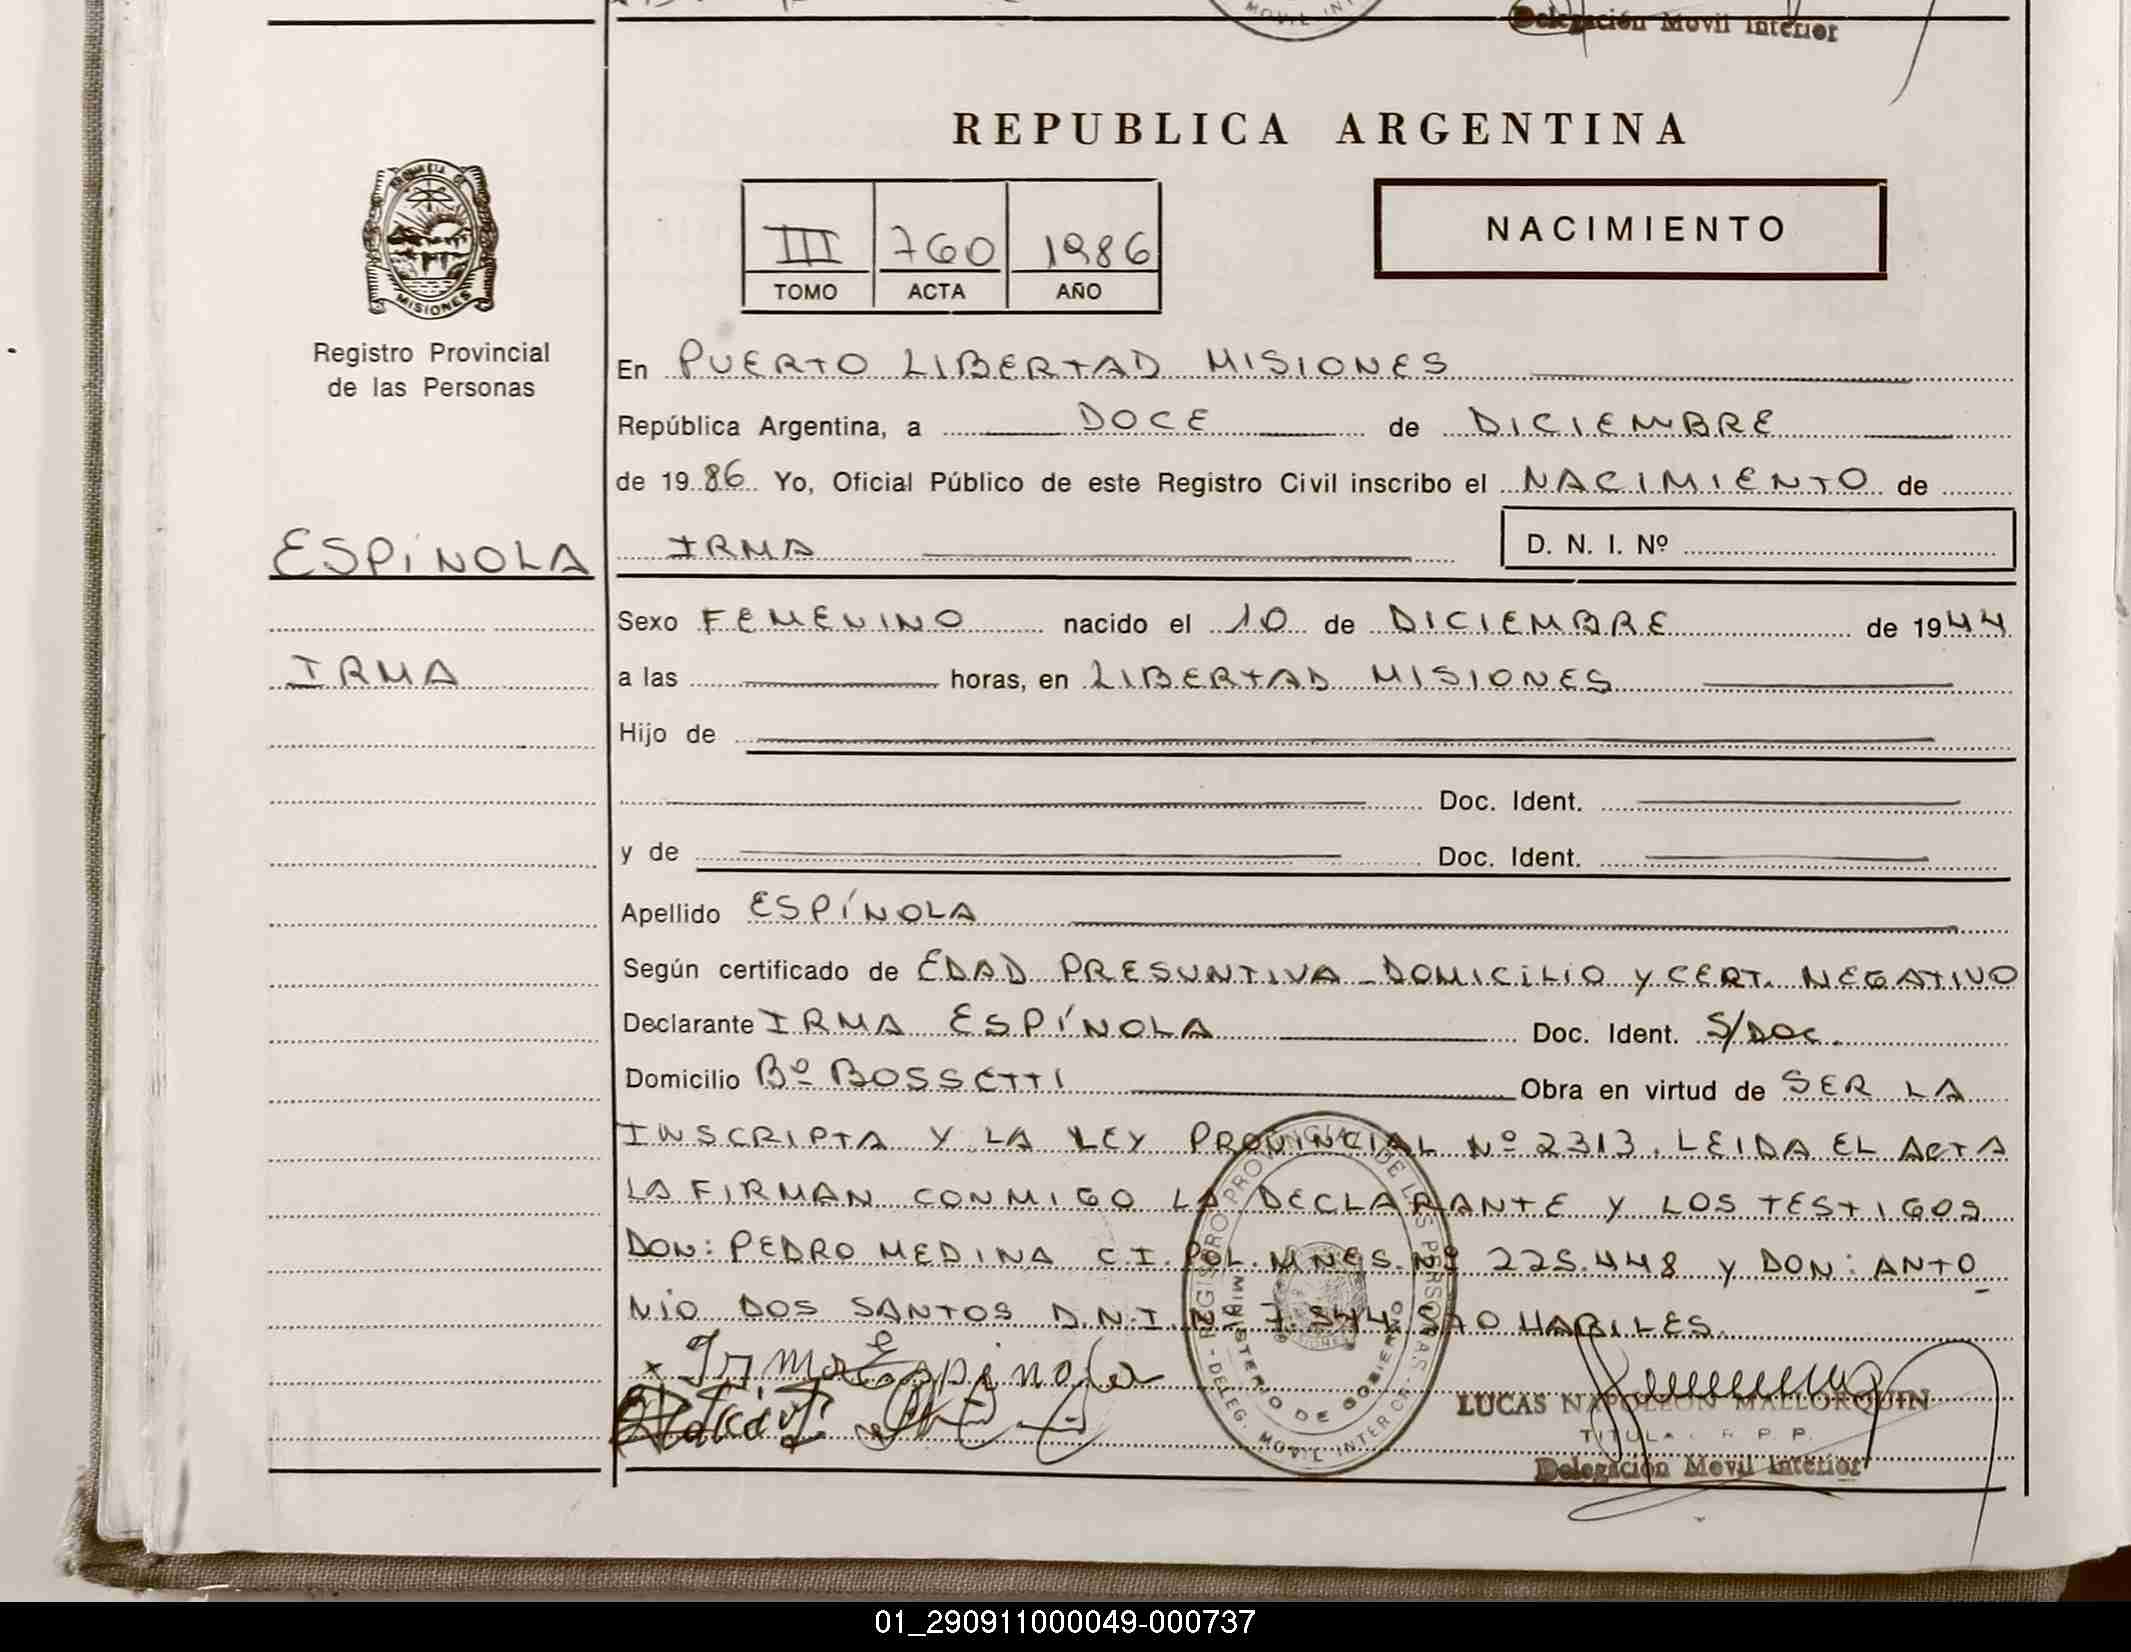 MOVIL INT
Delegación Movil Interior
REPUBLICA ARGENTINA
PROVINCIA DE
MISIONES
III 760 1986
TOMO ACTA AÑO
NACIMIENTO
Registro Provincial
de las Personas
ESPÍNOLA
IRMA
En PUERTO LIBERTAD MISIONES
República Argentina, a DOCE de DICIEMBRE
de 1986 Yo, Oficial Público de este Registro Civil inscribo el NACIMIENTO de
IRMA D. N. I. Nº
Sexo FEMENINO nacido el 10 de DICIEMBRE de 1944
a las horas, en LIBERTAD MISIONES
Hijo de
Doc. Ident.
y de Doc. Ident.
Apellido ESPÍNOLA
Según certificado de EDAD PRESUNTIVA - DOMICILIO Y CERT. NEGATIVO
Declarante IRMA ESPÍNOLA Doc. Ident. S/DOC.
Domicilio Bº BOSSETTI Obra en virtud de SER LA
INSCRIPTA Y LA LEY PROVINCIAL Nº 2313. LEIDA EL ACTA
LA FIRMAN CONMIGO LA DECLARANTE Y LOS TESTIGOS
DON: PEDRO MEDINA C.I. POL. MNES. Nº 225.448 Y DON: ANTO
NIO DOS SANTOS D.N.I. Nº 7.544.570 HABILES.
x Irma Espinola
REGISTRO PROVINCIAL DE LAS PERSONAS - DELEG. MOVIL INTERIOR -
MINISTERIO DE GOBIERNO
LUCAS NAPOLEON MALLORQUIN
TITULAR R. P. P.
Delegación Movil Interior
01_290911000049-000737